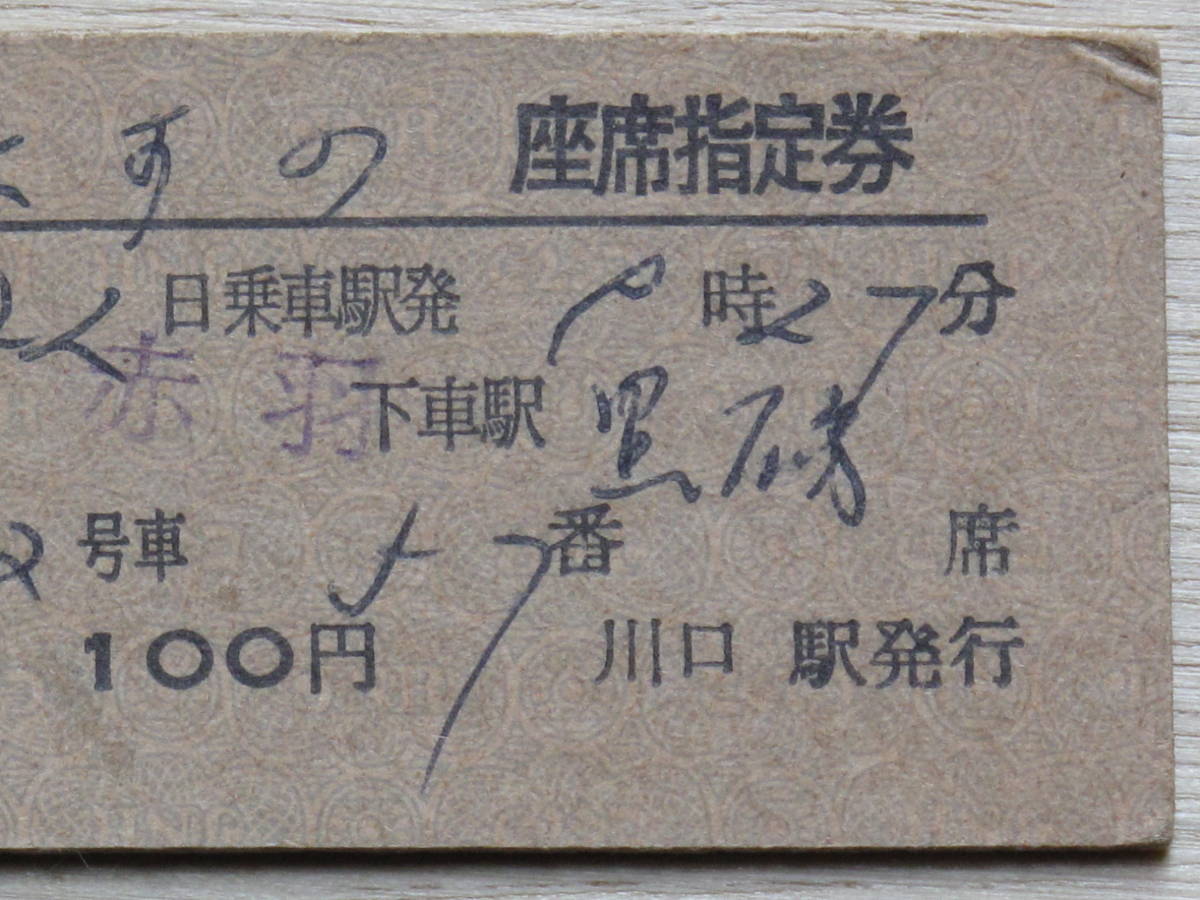 すの 座席指定券
2日乗車駅発 時27分
赤羽 下車駅 黒磯
2号車 57番 席
100円 川口 駅発行